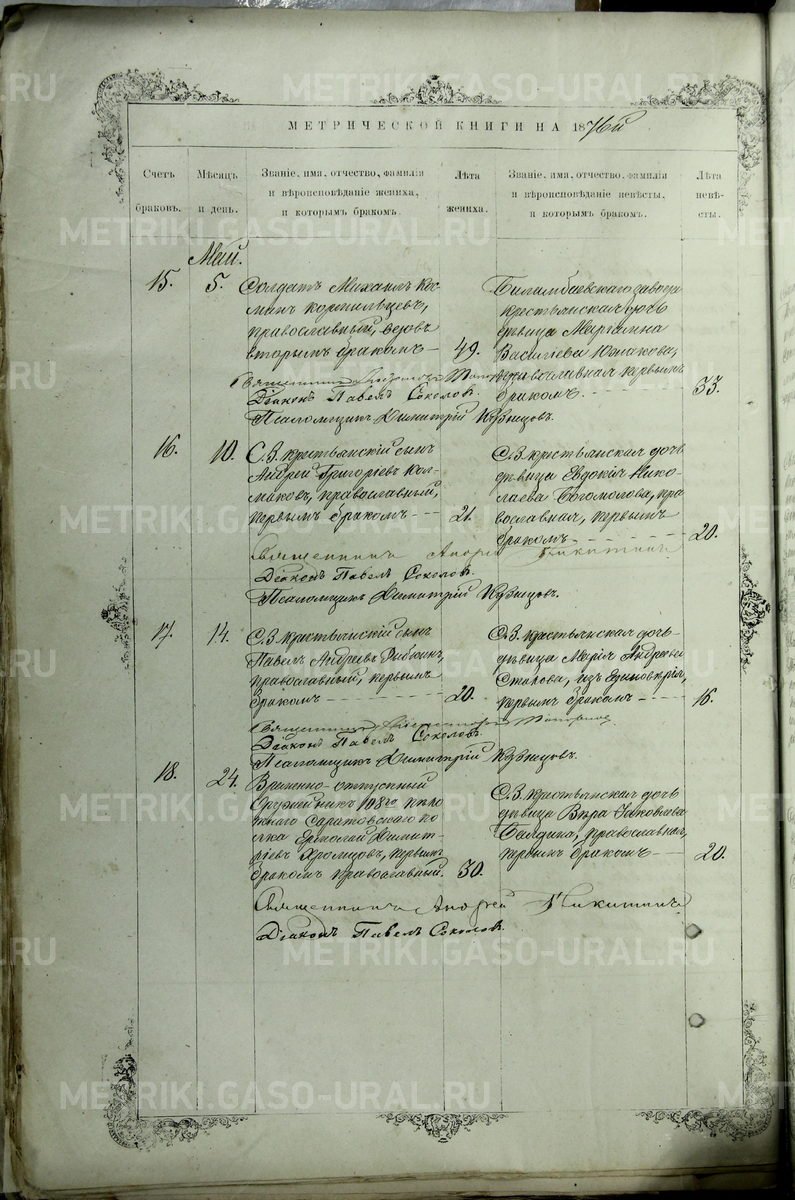 МЕТРИЧЕСКОЙ КНИГИ НА 1876й
Счетъ браковъ.
Мѣсяцъ и день.
Званіе, имя, отчество, фамилія
и вѣроисповѣданіе жениха,
и которымъ бракомъ.
Лѣта жениха.
Званіе, имя, отчество, фамилія
и вѣроисповѣданіе невѣсты,
и которымъ бракомъ.
Лѣта невѣ-
сты.
Май.
15.
5.
Солдатъ Михаилъ Кос-
минъ Кормильцевъ,
православный, вдовъ
вторымъ бракомъ
49.
Билимбаевскаго завода
крестьянская дочь
дѣвица Маріамна
Василіева Южакова,
православная первымъ
бракомъ.
33.
Священникъ
Діаконъ Павелъ Соколовъ.
Псаломщикъ Димитрій Кузнецовъ.
16.
10.
С. З. крестьянскій сынъ
Андрей Григоріевъ Кол-
маковъ, православный,
первымъ бракомъ
21.
С. З. крестьянская дочь
дѣвица Евдокія Нико-
лаева Богомолова, пра-
вославная, первымъ
бракомъ
20.
Священникъ Андрей Никитинъ
Діаконъ Павелъ Соколовъ.
Псаломщикъ Димитрій Кузнецовъ.
17.
14.
С. З. крестьянскій сынъ
Павелъ Андреевъ Рябкинъ,
православный, первымъ
бракомъ
20.
С. З. крестьянская дочь
дѣвица Марія Андреева
изъ Единовѣрія,
первымъ бракомъ
16.
Священникъ
Діаконъ Павелъ Соколовъ.
Псаломщикъ Димитрій Кузнецовъ.
18.
24.
Временно-отпускный
Оружейникъ 108го пѣхо
тнаго Саратовскаго по
лка Ермолай Димит-
ріевъ Хромцовъ, первымъ
бракомъ православный.
30.
С. З. крестьянская дочь
дѣвица Вѣра Іаковлева
православная,
первымъ бракомъ
20.
Священникъ Андрей Никитинъ
Діаконъ Павелъ Соколовъ.
METRIKI.GASO-URAL.RU